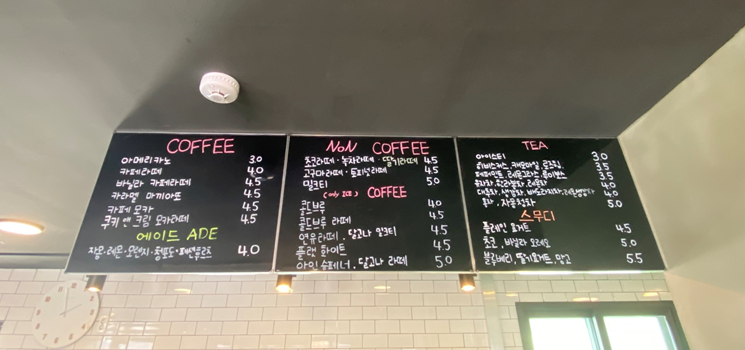 COFFEE
아메리카노 3.0
카페라떼 4.0
바닐라 카페라떼 4.5
카라멜 마끼아또 4.5
카페 모카 4.5
쿠키 앤 크림 모카라떼 4.5
에이드 ADE
자몽·레몬·오렌지·청포도· 4.0
NoN COFFEE
초코라떼·녹차라떼·딸기라떼 4.5
고구마라떼·토피넛라떼 4.5
밀크티 5.0
(only ICE) COFFEE
콜드브루 4.0
콜드브루 라떼 4.5
연유라떼·달고나 밀크티 4.5
플랫 화이트 4.5
아인슈페너·달고나 라떼 5.0
TEA
아이스티 3.0
히비스커스, 캐모마일, 3.5
페퍼민트, 레몬그라스, 루이보스 3.5
유자차, 레몬차 4.0
대추차, 쌍화차, 4.0
자몽차 5.0
스무디
플레인 요거트 4.5
초코, 바닐라 오레오 5.0
블루베리, 딸기요거트, 망고 5.5